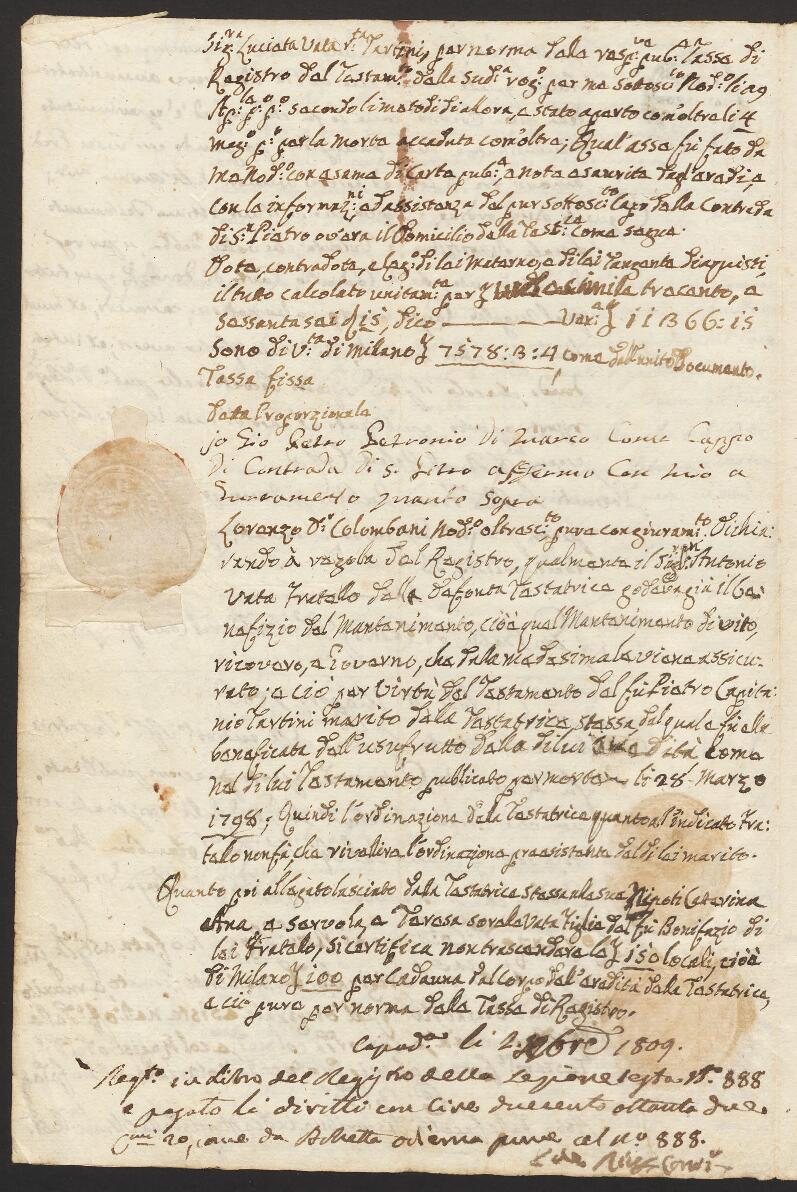 Sig:ra Lucia Vata v:ta Tartini, per norma della resp:va pub:a Tassa di
Registro del Testam:to della sud:a reg:o per me sottosc:to Nod:o li 29
secondo li metodi d'allora, e stato aperto com'oltre li 4
mag:o p:o per la morte accaduta com'oltre; Qual'asse fù fatto da
me Nod:o con esame di Carte pub:e, e note esaurite dagl'eredi, e
con la informaz:ni, ed assistenza del pur sottosc:to Capo della Contrada
di S:n Pietro ov'era il Domicilio della Test:ce come segue.
Dote, contradote, e di lei Materno, e di lei d'acquisti,
il tutto calcolato unitam:te per trecento, e
sessanta sei 15, dico Ven:e 11366:15
Sono di V:ta di Milano 7578:3:4, come dall'unito Documento.
Tassa fissa
Detta Proporzionale
jo Gio Petro Petronio di Marco Come Cappo
di Contrada di S. Pitro affermo Con mio
Giuramento quanto sopra
Lorenzo D:r Colombani Nod:o oltrasc:to pure con giuram:to dichia:
rando à regola del Registro, qualmente il Sig:r Antonio
Vata Fratello della defonta Testatrice godeva già il be:
nefizio del Mantenimento, cioè quel Mantenimento di vito,
ricovero, e Governo, che dalla medesima le viene assicu:
rato; e ciò per virtù del Testamento del fù Pietro Capita:
nio Tartini marito della Testatrice stessa dal quale fù ella
beneficata dell'usufrutto della di lui eredità come
nel di lui Testamento publicato per morte li 28. Marzo
1798; Quindi l'ordinazione della Testatrice quanto al'indicato Fra:
tello non fà, che rivallire l'ordinazione preesistente del di lei marito.
Quanto poi al legato lasciato dalla Testatrice stessa alle sue Nipoti Catterina
Ana, e Servola, e Teresa sorelle Vata Figlie del fù Bonifazio di
lei Fratello, si certifica non trascendere le 150 locali, cioè
di Milano 100 per Cadauna dal corpo dell'eredità della Testatrice,
e ciò pure per norma della Tassa di Registro.
Capod:a li 2. 1809.
Reg:to in Libro del Registro della N:o 888
e pagato li diritti con Lire duecento ottanta due
20, come da Bolletta odierna pure al n:o 888.